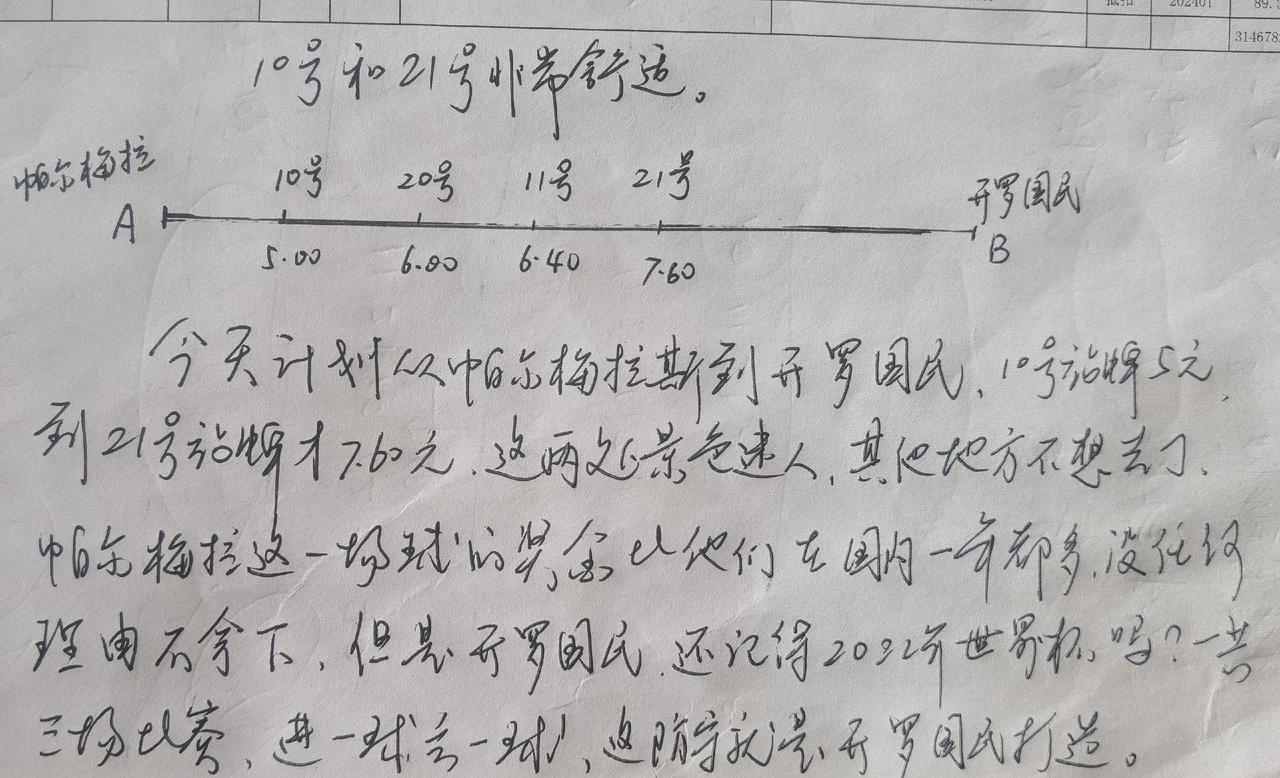 抵扣 202401 89.
314678
10号和21号非常舒适。
帕尔梅拉 10号 20号 11号 21号 开罗国民
A B
5.00 6.00 6.40 7.60
今天计划从帕尔梅拉斯到开罗国民、10号站牌5元、
到21号站牌才7.60元、这两处景色迷人、其他地方不想去了、
帕尔梅拉这一场球的奖金比他们在国内一年都多、没任何
理由不拿下、但是开罗国民、还记得2022年世界杯吗?一共
三场比赛、进一球丢一球、这防守就是开罗国民打造。